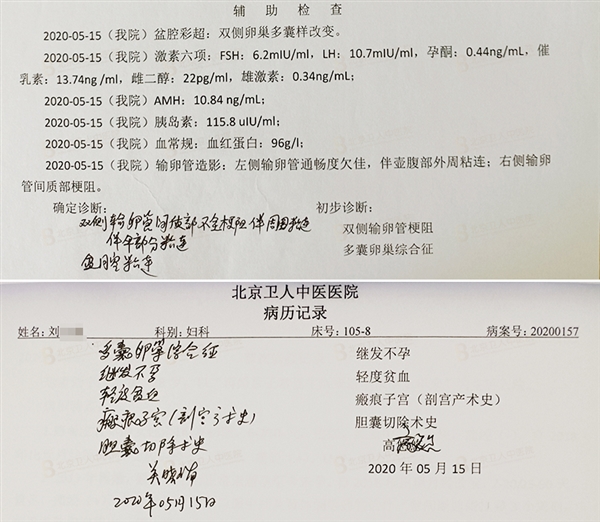 辅助检查
2020-05-15（我院）盆腔彩超：双侧卵巢多囊样改变。
2020-05-15（我院）激素六项：FSH：6.2mIU/ml，LH：10.7mIU/ml，孕酮：0.44ng/mL，催
乳素：13.74ng/ml，雌二醇：22pg/ml，雄激素：0.34ng/mL；
2020-05-15（我院）AMH：10.84 ng/mL；
2020-05-15（我院）胰岛素：115.8 uIU/ml；
2020-05-15（我院）血常规：血红蛋白：96g/l；
2020-05-15（我院）输卵管造影：左侧输卵管通畅度欠佳，伴壶腹部外周粘连；右侧输卵
管间质部梗阻。
确定诊断：
双侧输卵管间质部不全梗阻伴周围粘连
伴伞部分粘连
盆腔粘连
初步诊断：
双侧输卵管梗阻
多囊卵巢综合征
北京卫人中医医院
病历记录
姓名：刘 科别：妇科 床号：105-8 病案号：20200157
多囊卵巢综合征
继发不孕
轻度贫血
瘢痕子宫（剖宫产术史）
胆囊切除术史
2020年05月15日
继发不孕
轻度贫血
瘢痕子宫（剖宫产术史）
胆囊切除术史
高
2020 年 05 月 15 日